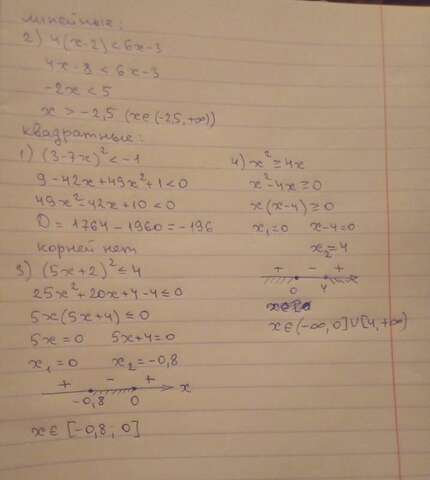 линейные:
2) 4(x-2)<6x-3
4x-8<6x-3
-2x<5
x>-2,5 (x∈(-2,5,+∞))
квадратные:
1) (3-7x)²<-1
9-42x+49x²+1<0
49x²-42x+10<0
D=1764-1960=-196
корней нет
3) (5x+2)²≤4
25x²+20x+4-4≤0
5x(5x+4)≤0
5x=0 5x+4=0
x₁=0 x₂=-0,8
+ - + x
-0,8 0
x∈[-0,8; 0]
4) x²≥4x
x²-4x≥0
x(x-4)≥0
x₁=0 x-4=0
x₂=4
+ - +
0 4 x
x∈(-∞,0]∪[4,+∞)